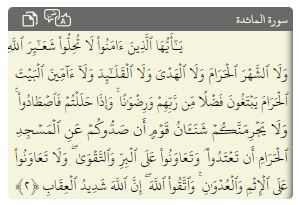 سورة المائدة
يَـٰٓأَيُّهَا ٱلَّذِينَ ءَامَنُوا۟ لَا تُحِلُّوا۟ شَعَـٰٓئِرَ ٱللَّهِ
وَلَا ٱلشَّهْرَ ٱلْحَرَامَ وَلَا ٱلْهَدْىَ وَلَا ٱلْقَلَـٰٓئِدَ وَلَآ ءَآمِّينَ ٱلْبَيْتَ
ٱلْحَرَامَ يَبْتَغُونَ فَضْلًا مِّن رَّبِّهِمْ وَرِضْوَٰنًا ۚ وَإِذَا حَلَلْتُمْ فَٱصْطَادُوا۟ ۚ
وَلَا يَجْرِمَنَّكُمْ شَنَـَٔانُ قَوْمٍ أَن صَدُّوكُمْ عَنِ ٱلْمَسْجِدِ
ٱلْحَرَامِ أَن تَعْتَدُوا۟ ۘ وَتَعَاوَنُوا۟ عَلَى ٱلْبِرِّ وَٱلتَّقْوَىٰ ۖ وَلَا تَعَاوَنُوا۟
عَلَى ٱلْإِثْمِ وَٱلْعُدْوَٰنِ ۚ وَٱتَّقُوا۟ ٱللَّهَ ۖ إِنَّ ٱللَّهَ شَدِيدُ ٱلْعِقَابِ ﴿٢﴾